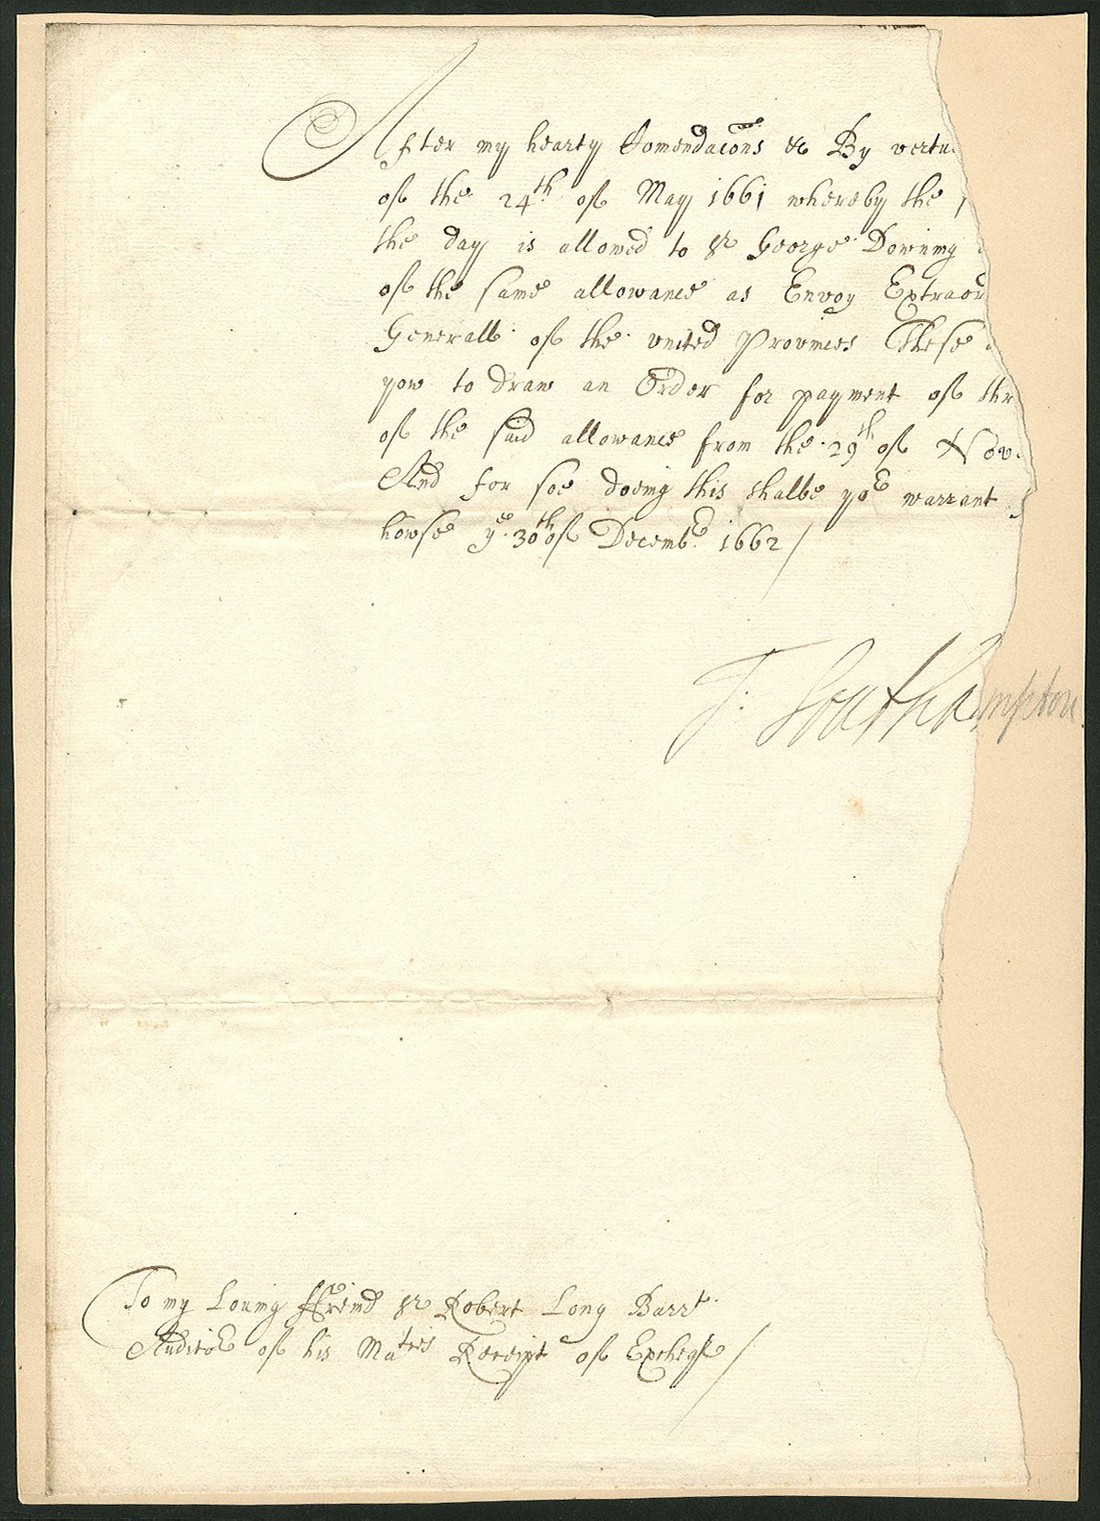 After my hearty Comendacons &c By vertu
of the 24th of May 1661 whereby the
the day is allowed to Sr George Downing
of the same allowance as Envoy Extraor
Generall of the united Provinces These
yow to draw an Order for payment of thr
of the said allowance from the 29th of Nov
And for soe doeing this shalbe yor warrant
howse ye 30th of Decembr 1662
T: Southampton
To my Loving ffreind Sr Robert Long Barrt
Auditor of his Maties Receipt of Excheqr